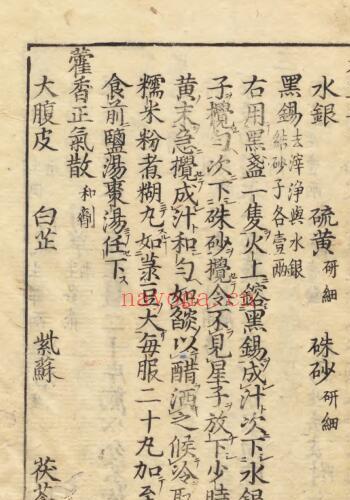 水銀 硫黄研細 硃砂研細
黑錫去滓淨與水銀結砂子各壹兩
右用黑盞一隻火上鎔黑錫成汁次下水銀
子攪勻次下硃砂攪令不見星子放下少時
黄末急攪成汁和勻如燄以醋洒之候冷取
糯米粉煮糊丸如菉豆大每服二十丸加至
食前鹽湯棗湯任下
藿香正氣散和劑
大腹皮 白芷 紫蘇 茯